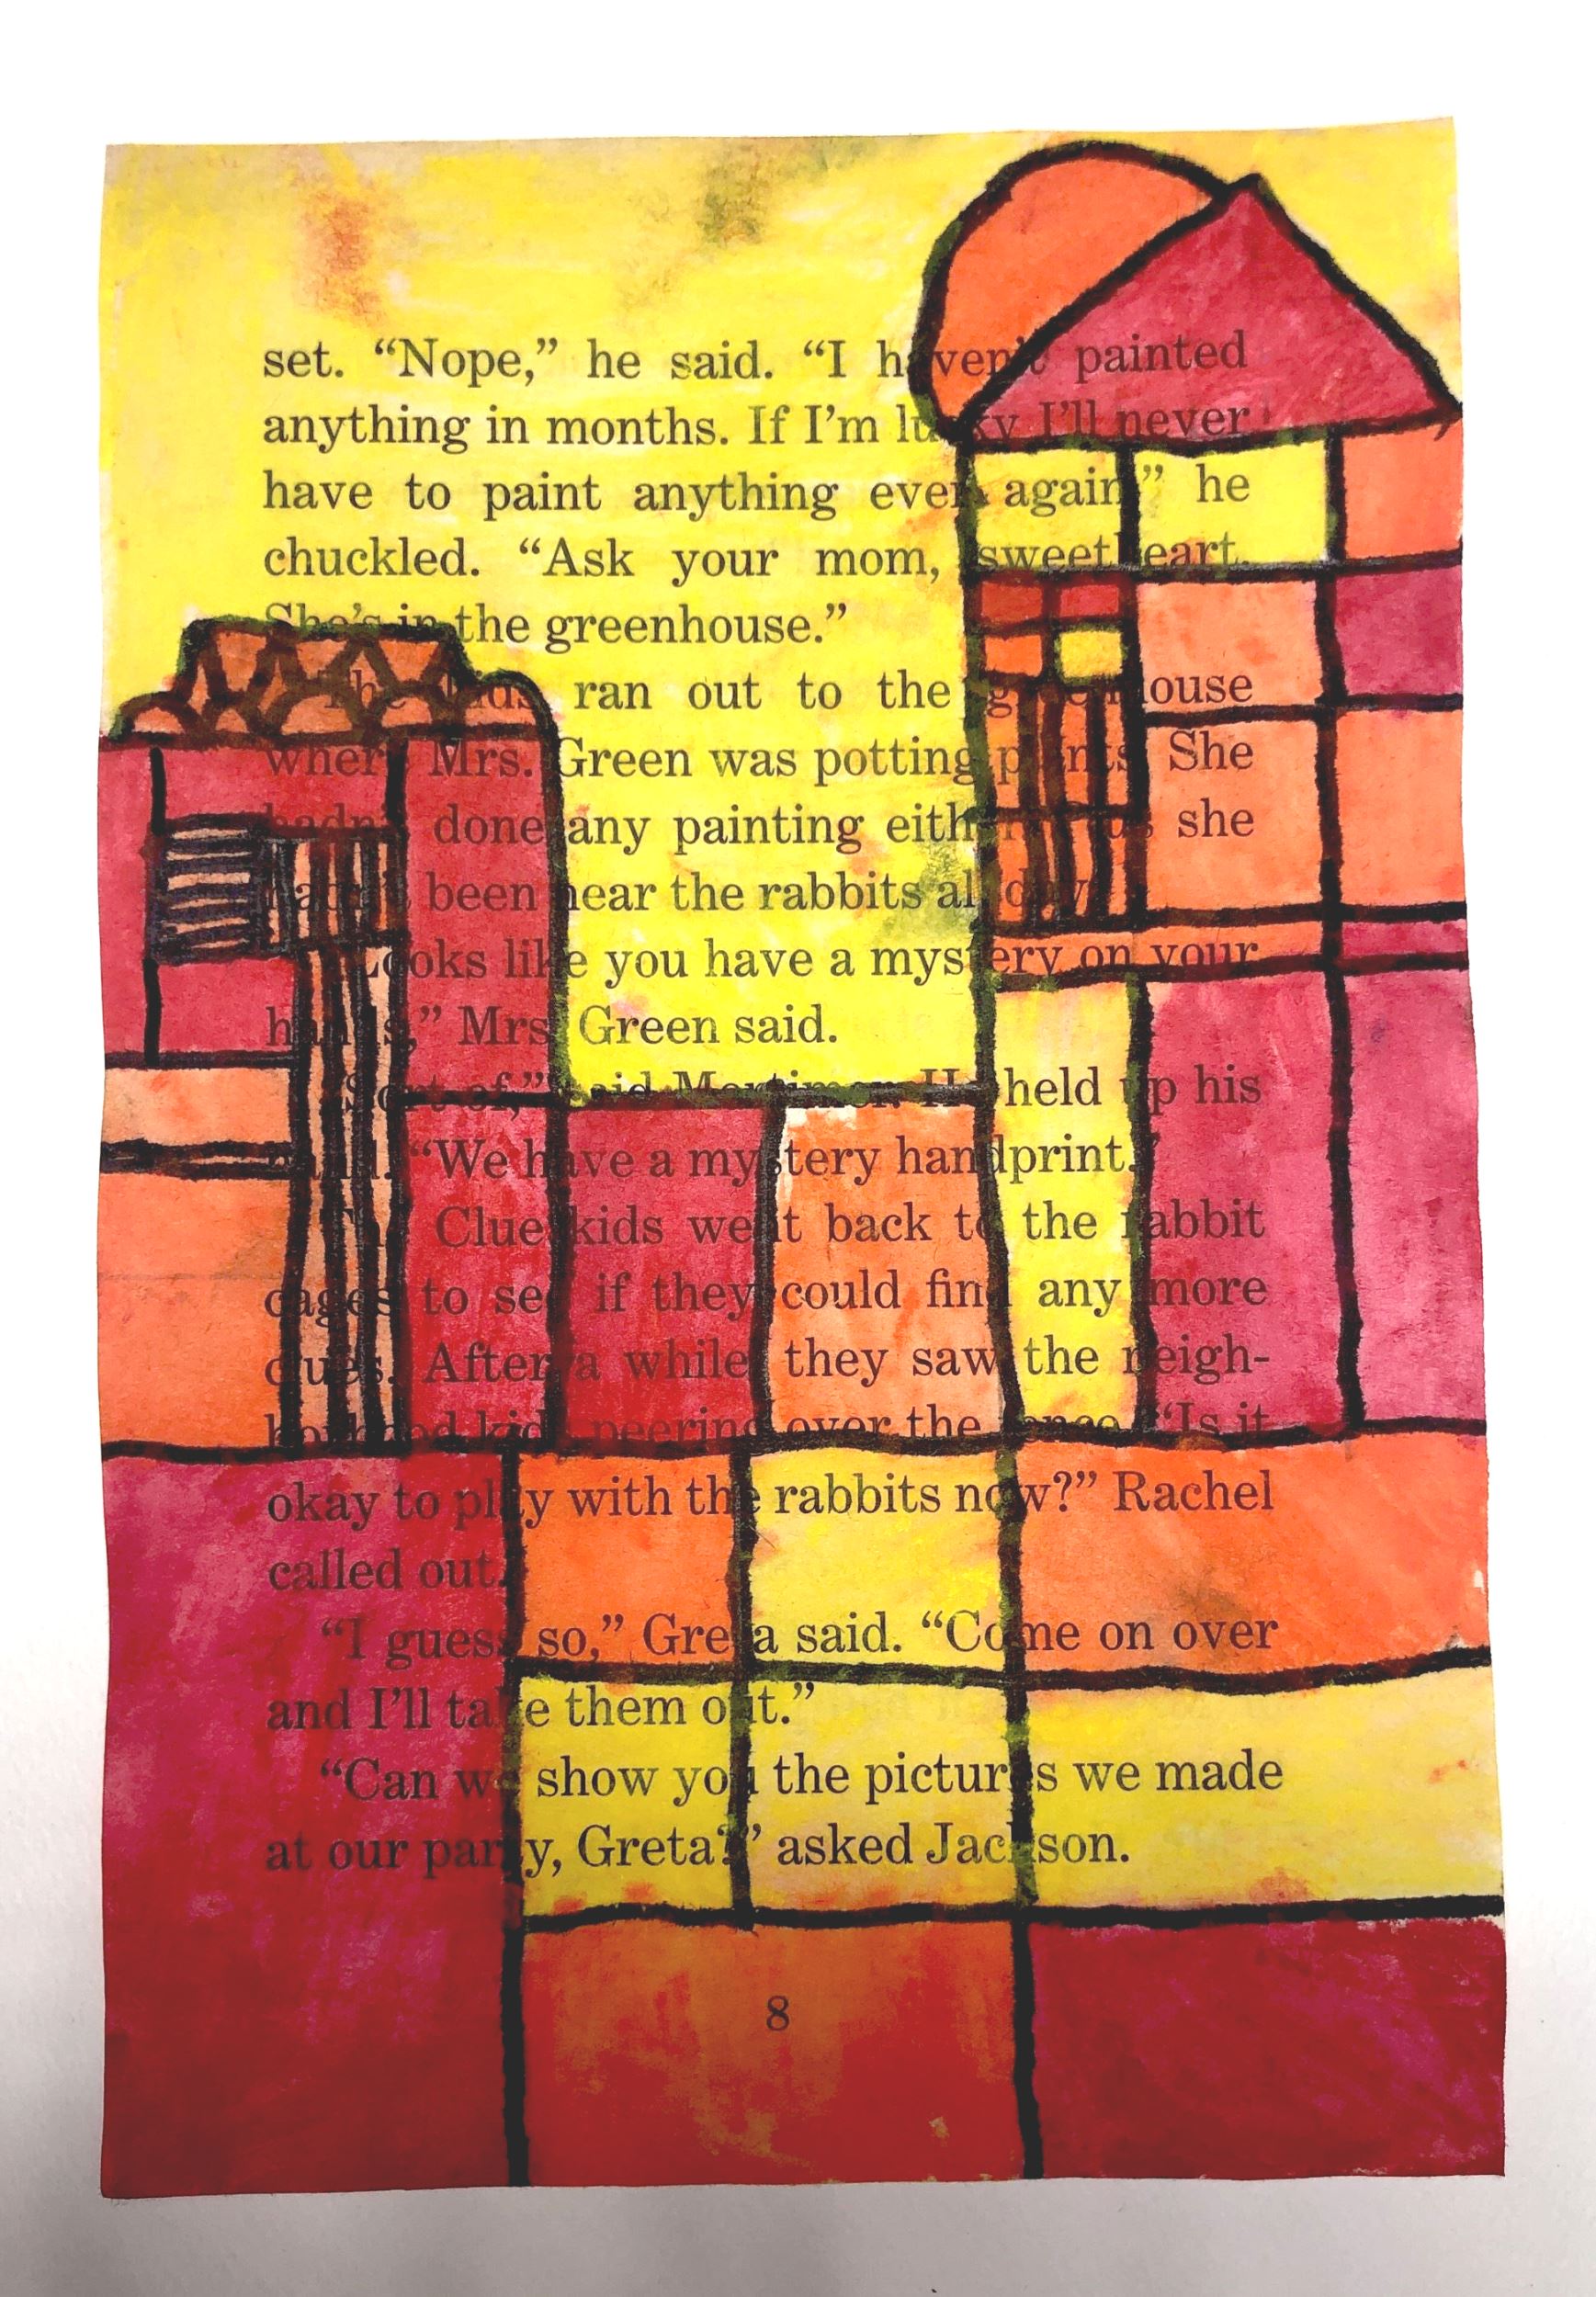 set. “Nope,” he said. “I haven’t painted
anything in months. If I’m lucky I’ll never
have to paint anything ever again,” he
chuckled. “Ask your mom, sweetheart.
She’s in the greenhouse.”
The kids ran out to the greenhouse
where Mrs. Green was potting plants. She
hadn’t done any painting either. Plus she
hadn’t been near the rabbits all day.
“Looks like you have a mystery on your
hands,” Mrs. Green said.
“Sort of,” said Mortimer. He held up his
hand. “We have a mystery handprint.”
The Clue kids went back to the rabbit
cages to see if they could find any more
clues. After a while they saw the neigh-
borhood kids peering over the fence. “Is it
okay to play with the rabbits now?” Rachel
called out.
“I guess so,” Greta said. “Come on over
and I’ll take them out.”
“Can we show you the pictures we made
at our party, Greta?” asked Jackson.
8